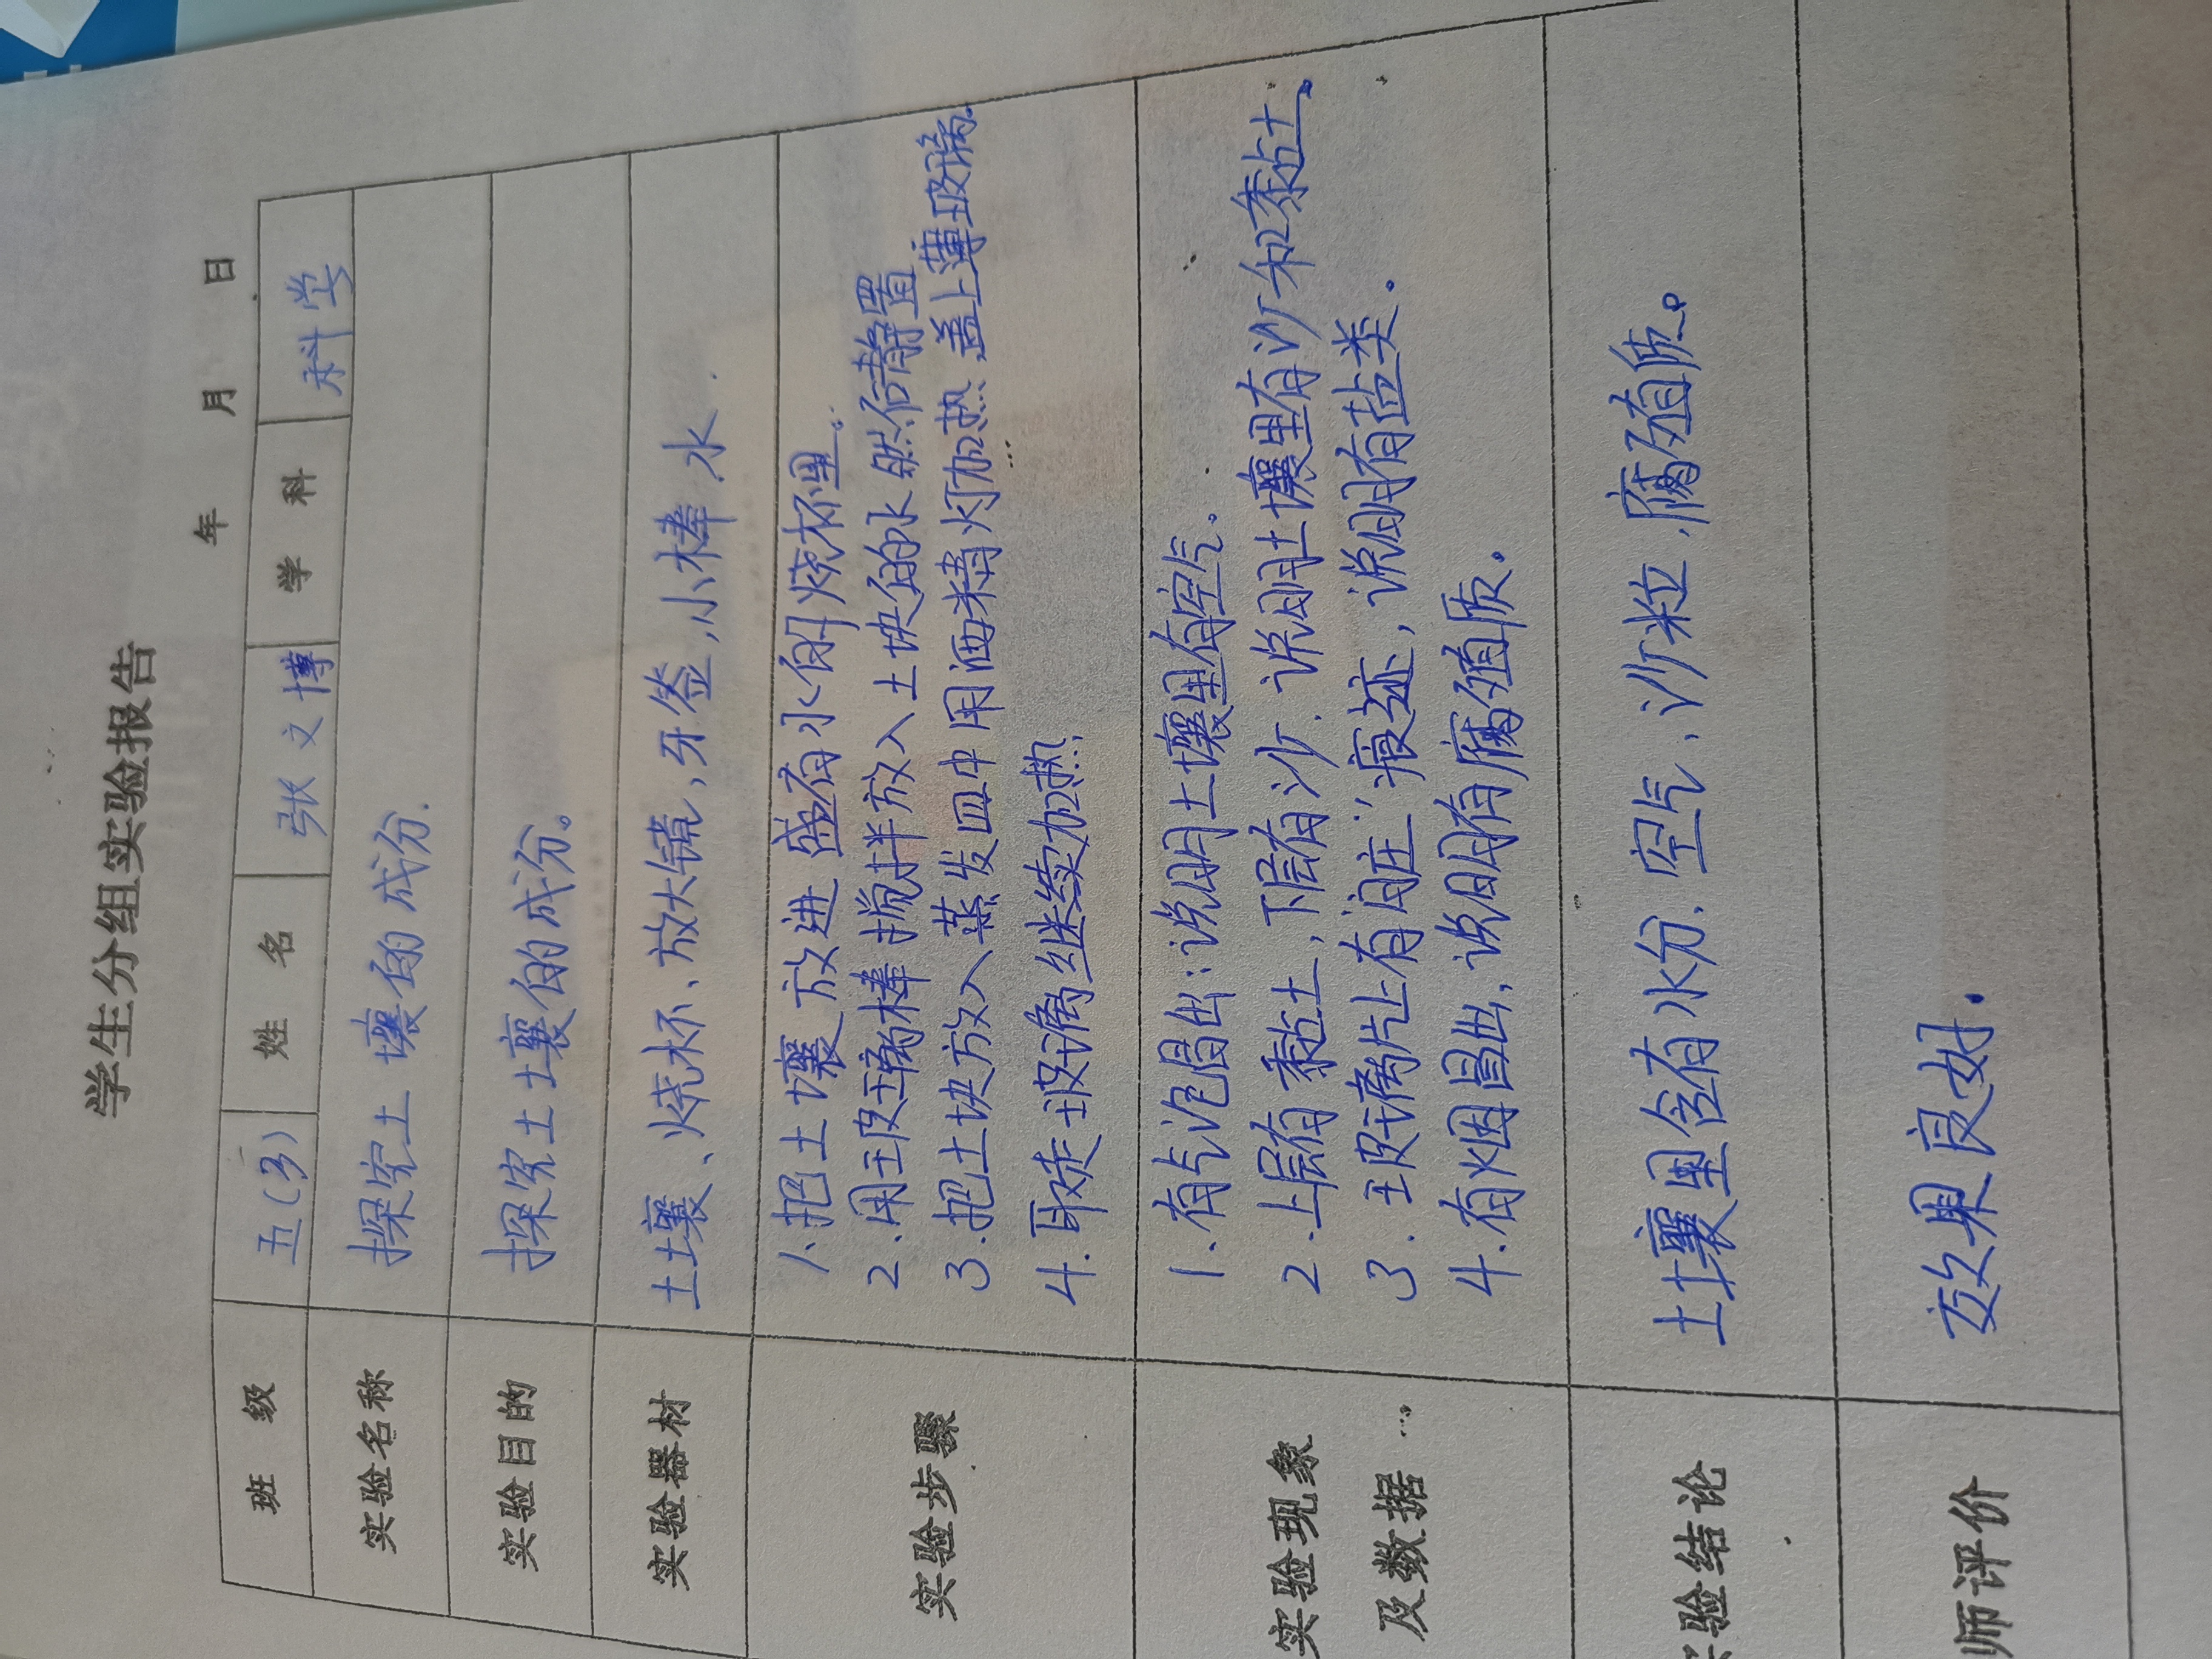 学生分组实验报告
年 月 日
班 级 五(3) 姓 名 张文博 学 科 科学
实验名称 探究土壤的成分.
实验目的 探究土壤的成分。
实验器材 土壤、烧杯、放大镜,牙签,小棒 水.
实验步骤
1.把土壤放进盛有水的烧杯里。
2.用玻璃棒搅拌放入土块的水然后静置
3.把土块放入蒸发皿中用酒精灯加热 盖上薄玻璃.
4.取走玻璃继续加热.
实验现象
及数据
1.有气泡冒出:说明土壤里有空气.
2.上层有黏土,下层有沙.说明土壤里有沙和黏土.
3.玻璃片上有 痕迹,说明有盐类.
4.有烟冒出,说明有腐殖质.
实验结论 土壤里含有水分.空气、沙粒,腐殖质。
师评价 效果良好.